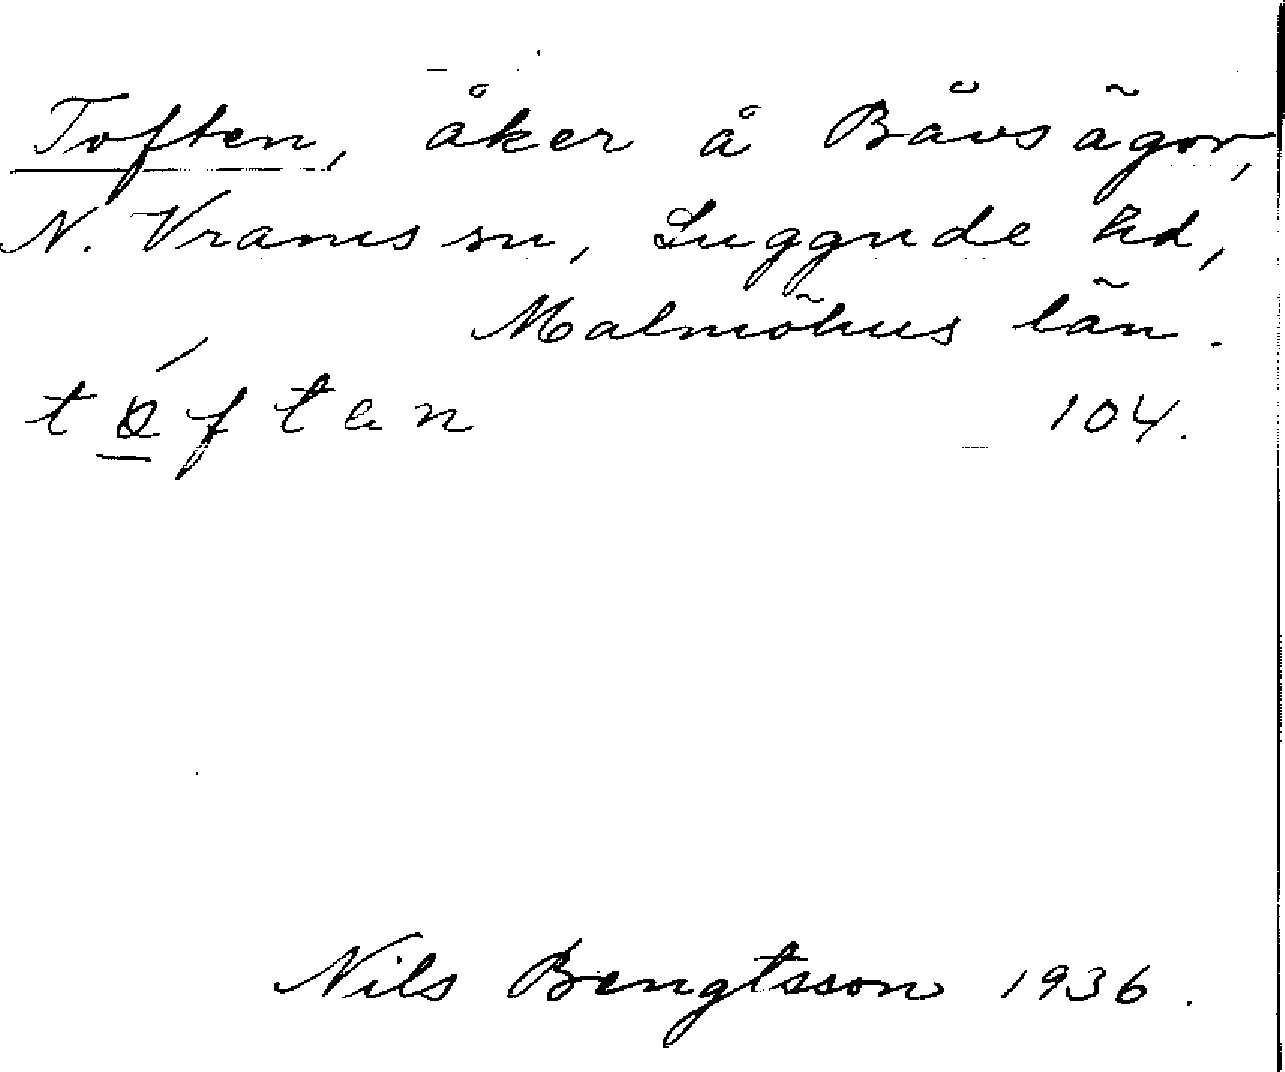 Toften, åker å Båvs ägor,
N. Vrams sn, Luggude hd,
Malmöhus län.
104.
Nils Bengtsson 1936.